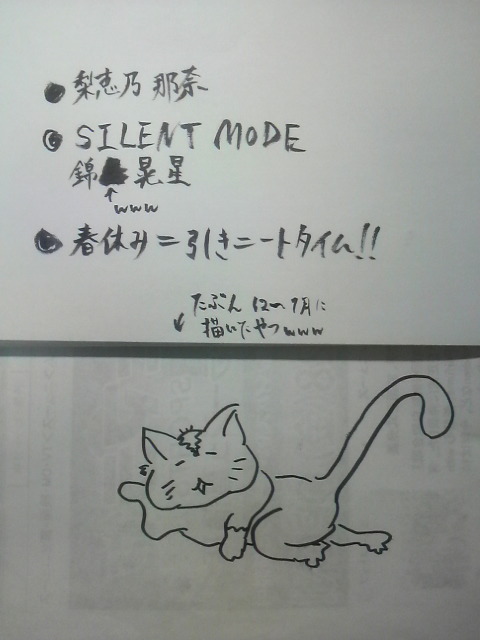 ● 梨恵乃 那奈
● SILENT MODE
錦 晃星
↑
www
● 春休み=引きニートタイム!!
たぶん 12〜1月に
↓ 描いたやつwww